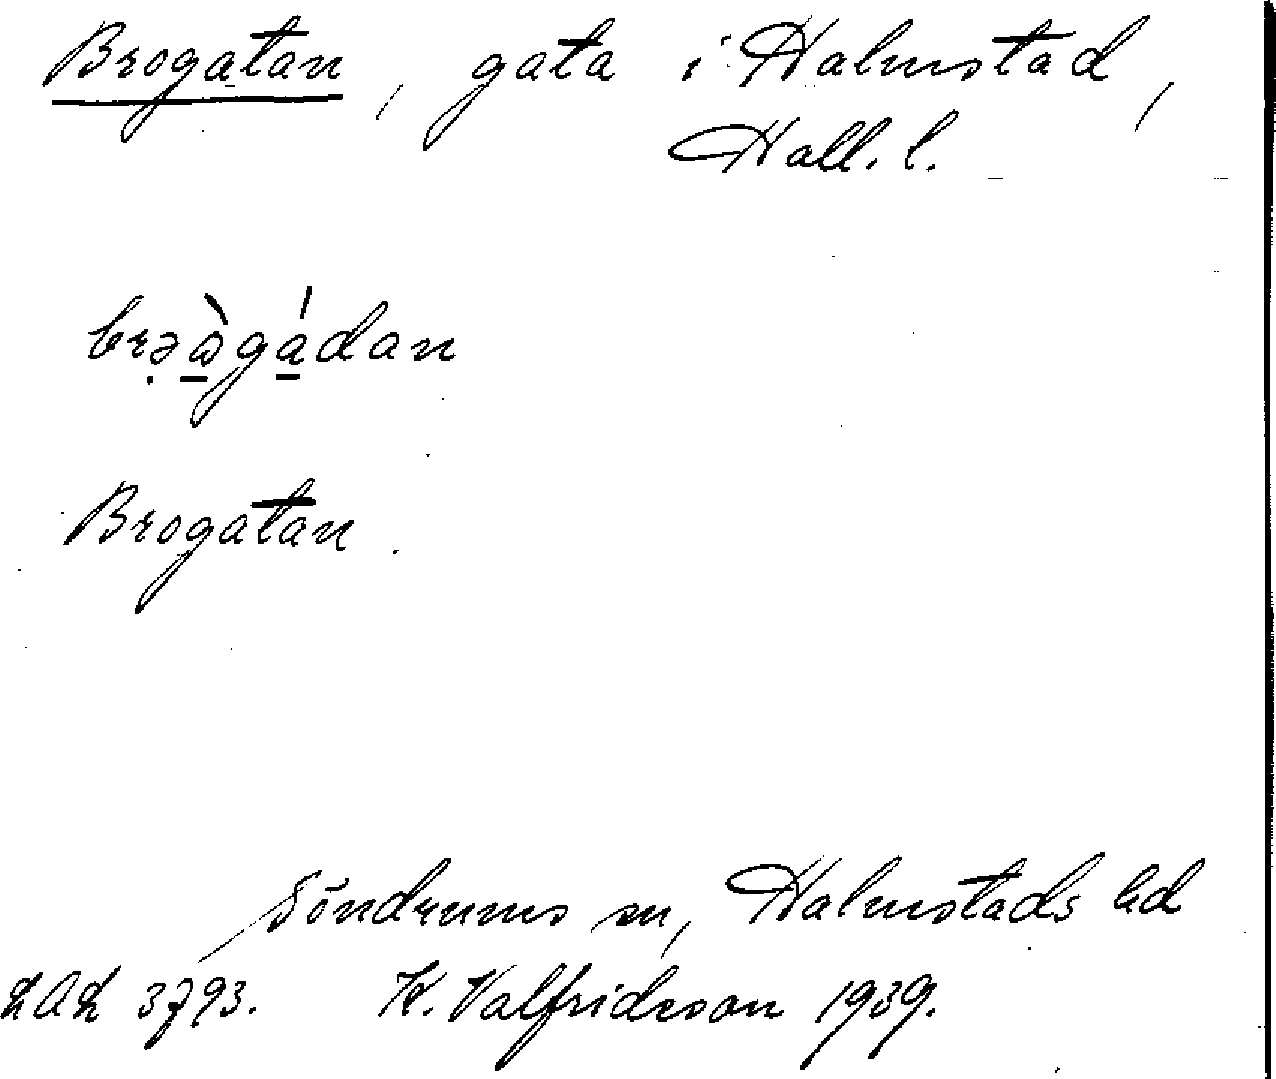 Brogatan, gata i Halmstad,
Hall. l.
brə̣ὼ̠gá̠dan
Brogatan.
Söndrums sn, Halmstads hd
LAL 3793. K. Valfridsson 1939.